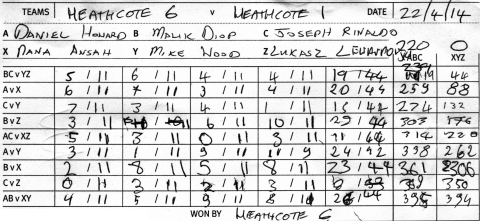 TEAMS HEATHCOTE 6 V HEATHCOTE 1 DATE 22/4/14
A DANIEL HOWARD B MALIK DIOP C JOSEPH RINALDO
X NANA ANSAH Y MIKE WOOD Z LUKASZ
220 0
ABC XYZ
BCvYZ 5 / 11 6 / 11 4 / 11 4 / 11 19 / 44 44
AvX 6 / 11 7 / 11 3 / 11 4 / 11 20 / 44 259 88
CvY 7 / 11 3 / 11 4 / 11 1 / 11 44 274 132
BvZ 3 / 11 6 / 11 10 / 11 44 303 176
ACvXZ 5 / 11 3 / 11 0 / 11 8 / 11 44 314 220
AvY 3 / 11 1 / 11 9 / 11 11 / 9 24 / 42 338 262
BvX 2 / 11 8 / 11 5 / 11 8 / 11 23 / 44 361 306
CvZ 0 / 11 3 / 11 3 / 11 350
ABvXY 4 / 11 5 / 11 9 / 11 8 / 11 26 / 44 395 394
WON BY HEATHCOTE 6